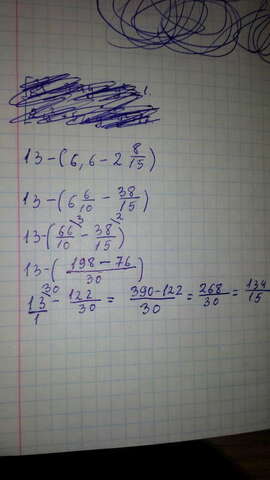 13-(6,6-2 8/15)
13-(6 6/10 - 38/15)
13-(66/10 3 - 38/15 2)
13-(198-76/30)
13/1 30 - 122/30 = 390-122/30 = 268/30 = 134/15